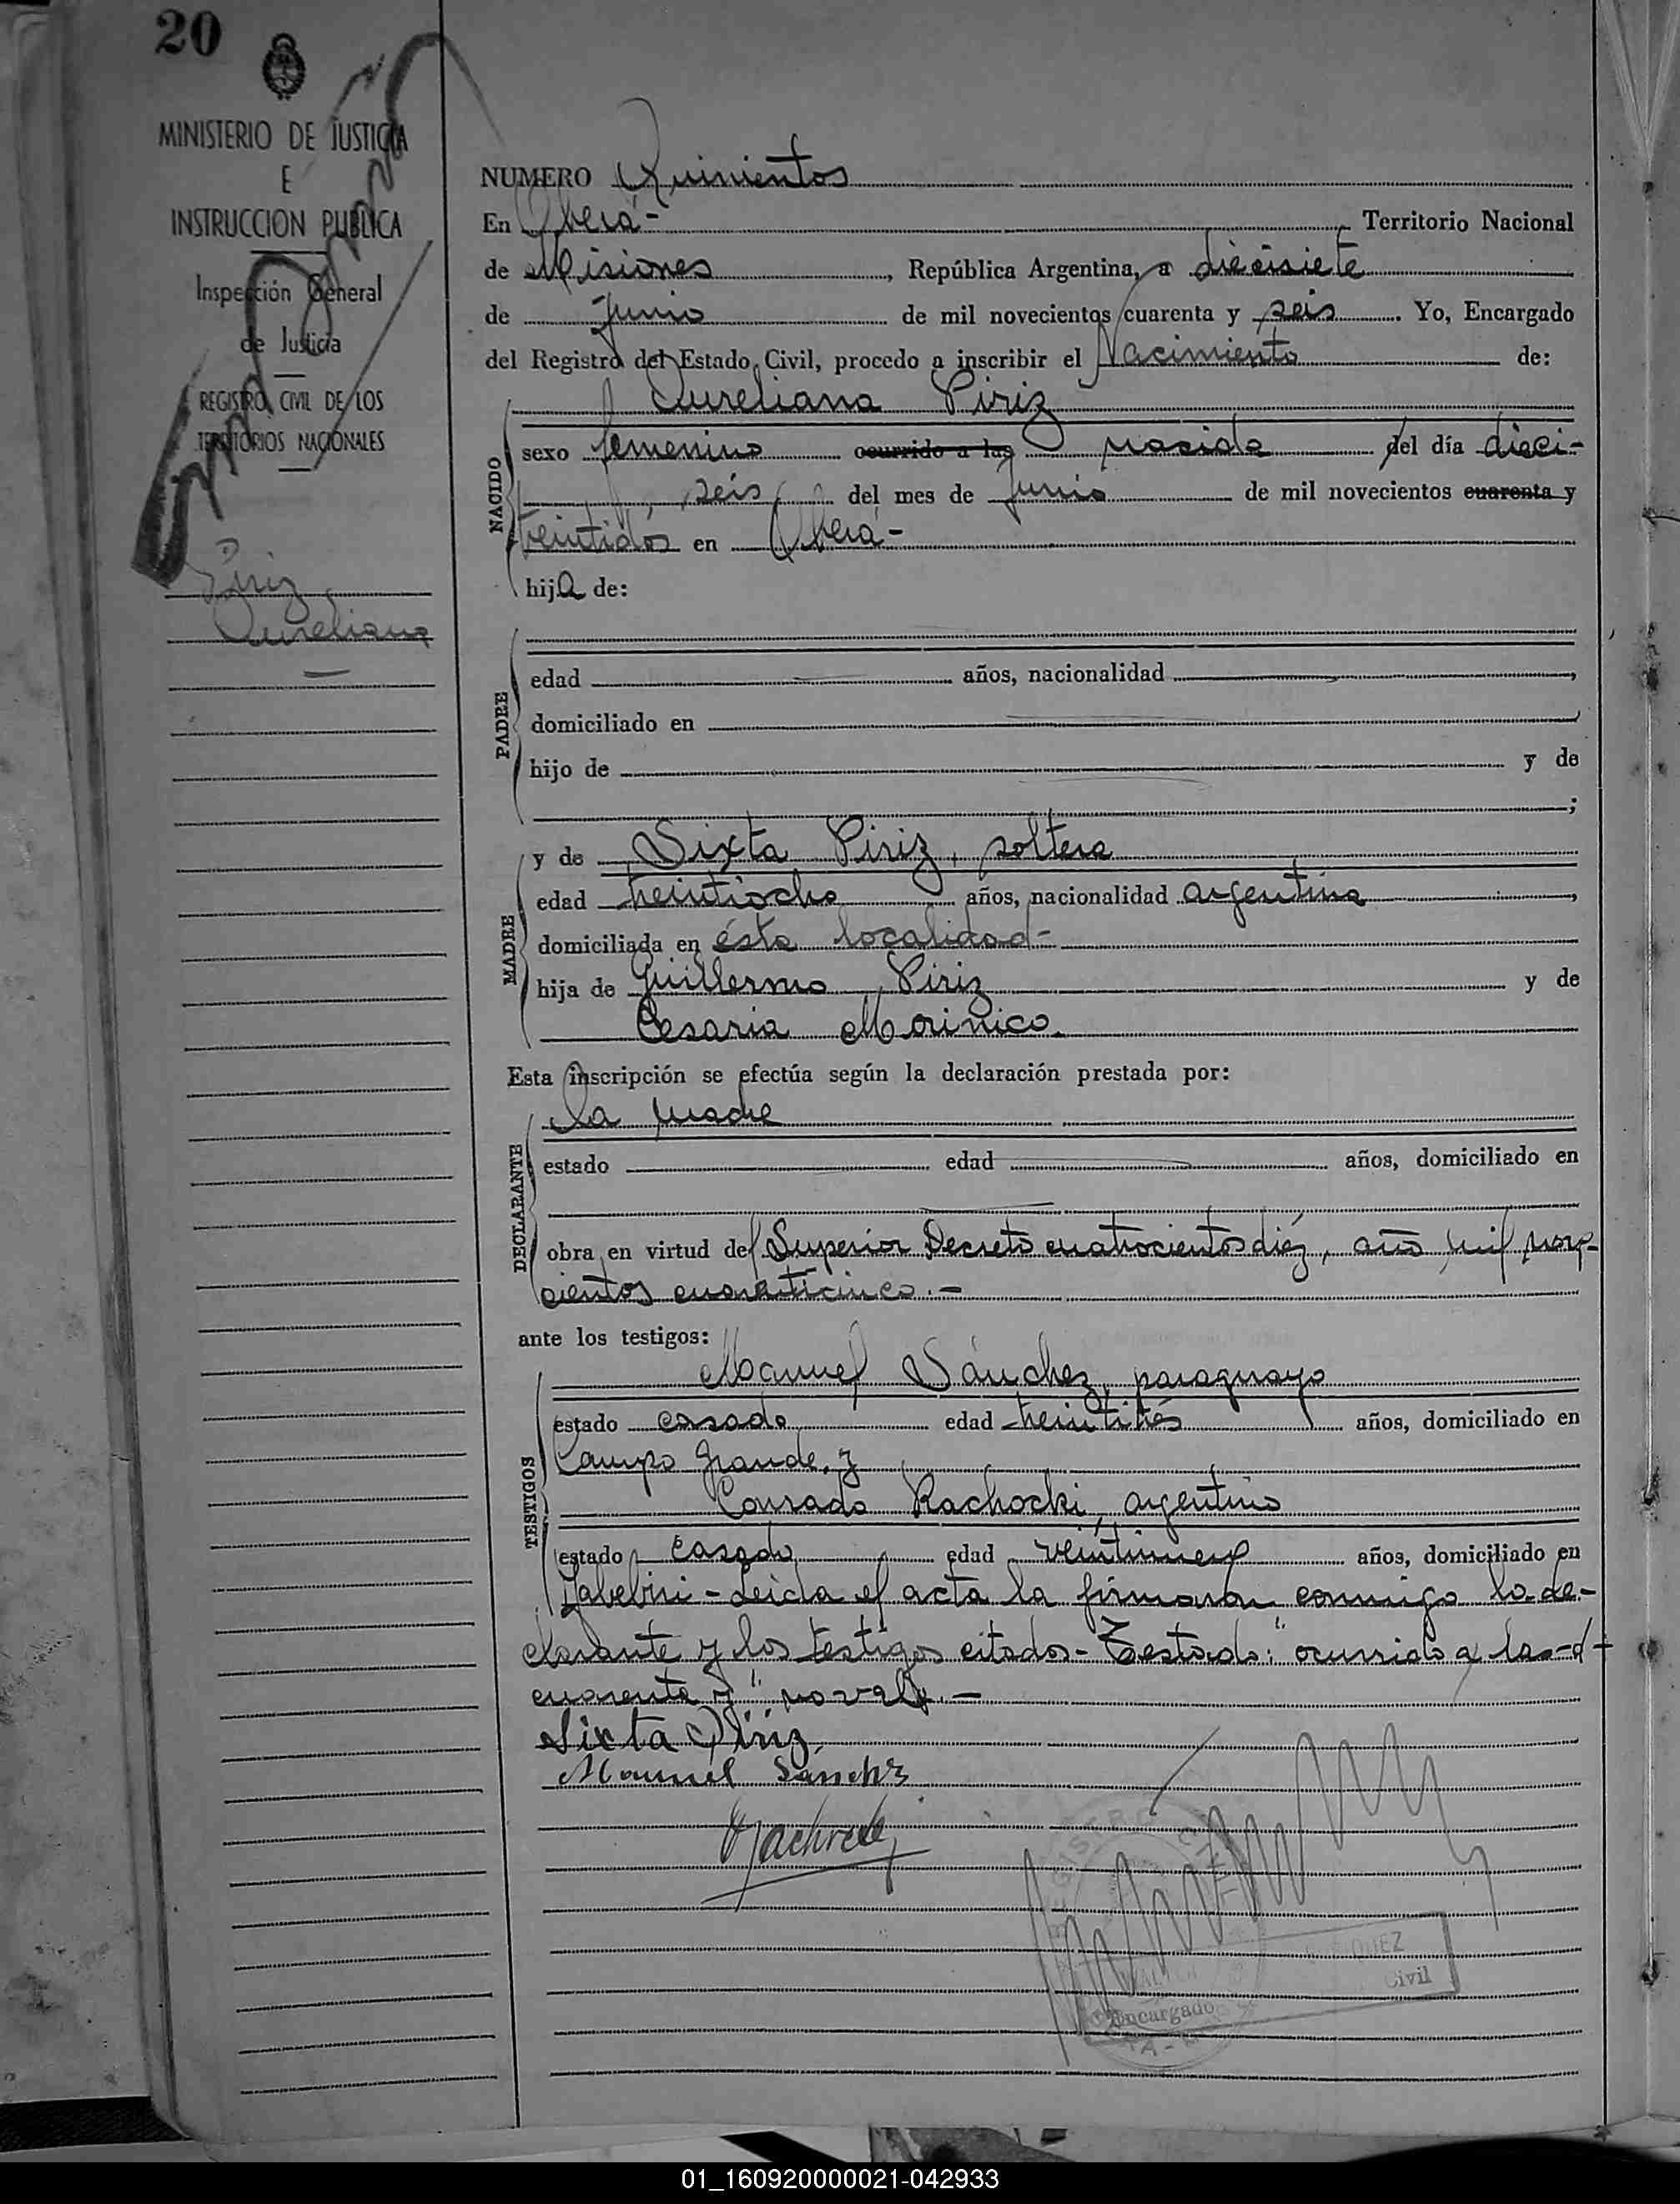 20
MINISTERIO DE JUSTICIA
E
INSTRUCCION PUBLICA
Inspección General
de Justicia
REGISTRO CIVIL DE LOS
TERRITORIOS NACIONALES
Piriz
Aureliana
NUMERO Quinientos
En Oberá- Territorio Nacional
de Misiones, República Argentina, a diecisiete
de Junio de mil novecientos cuarenta y seis. Yo, Encargado
del Registro del Estado Civil, procedo a inscribir el Nacimiento de:
NACIDO
Aureliana Piriz
sexo femenino ocurrido a las nacida del día dieci-
seis del mes de Junio de mil novecientos cuarenta y
treintidós en Oberá-
hija de:
PADRE
edad años, nacionalidad ,
domiciliado en
hijo de y de
;
MADRE
y de Sixta Piriz, soltera
edad treintiocho años, nacionalidad argentina,
domiciliada en ésta localidad-
hija de Guillermo Piriz y de
Cesaria Morinico.
Esta inscripción se efectúa según la declaración prestada por:
DECLARANTE
la madre
estado edad años, domiciliado en
obra en virtud del Superior Decreto cuatrocientos diéz, año mil nove-
cientos cuarenticinco.-
ante los testigos:
TESTIGOS
Manuel Sánchez, paraguayo
estado casado edad treintitrés años, domiciliado en
Campo Grande, y
Conrado Rachocki, argentino
estado casado edad años, domiciliado en
- Leida el acta la firmaron conmigo la de-
clarante y los testigos citados- Testado: "ocurrido a las-d-
cuarenta y" no vale.-
Sixta Piriz
Manuel Sanchz
REGISTRO CIVIL
Encargado
Civil
01_160920000021-042933